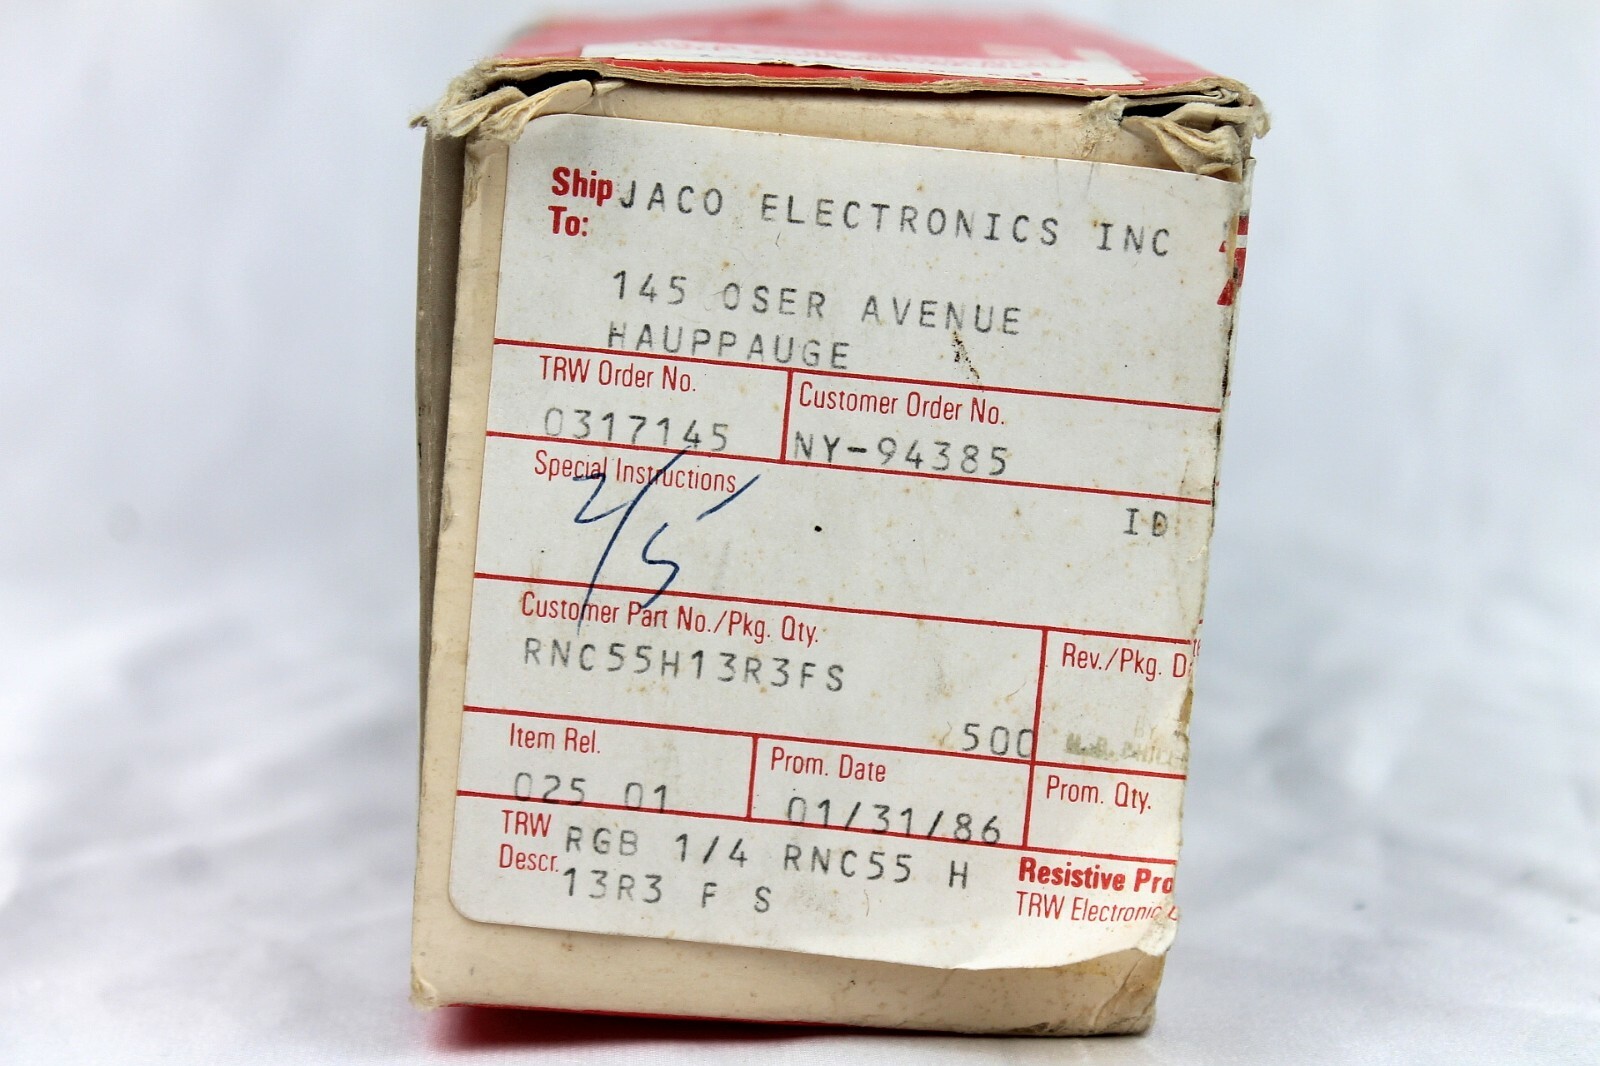 Ship To: JACO ELECTRONICS INC
145 OSER AVENUE
HAUPPAUGE
TRW Order No. Customer Order No.
0317145 NY-94385
Special Instructions
ID
2/5
Customer Part No./Pkg. Qty. Rev./Pkg. D
RNC55H13R3FS
500
Item Rel. Prom. Date Prom. Qty.
025 01 01/31/86
TRW Descr. RGB 1/4 RNC55 H
13R3 F S
Resistive Pro
TRW Electronic